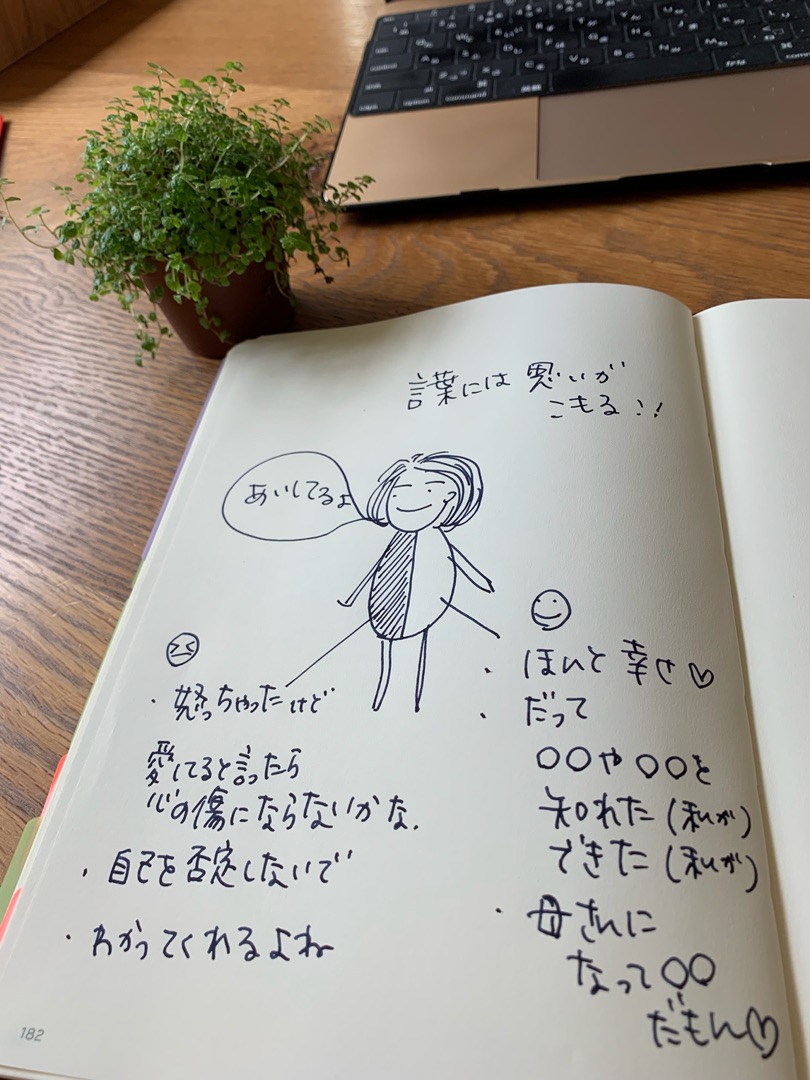 言葉には 思いが
こもる!!
あいしてるよ
・怒っちゃったけど
愛してると言ったら
心の傷にならないかな.
・自己を否定しないで
・わかってくれるよね
・ほんと幸せ♡
・だって
〇〇や〇〇を
知れた(私が)
できた(私が)
・母さんに
なって〇〇
だもん♡
182